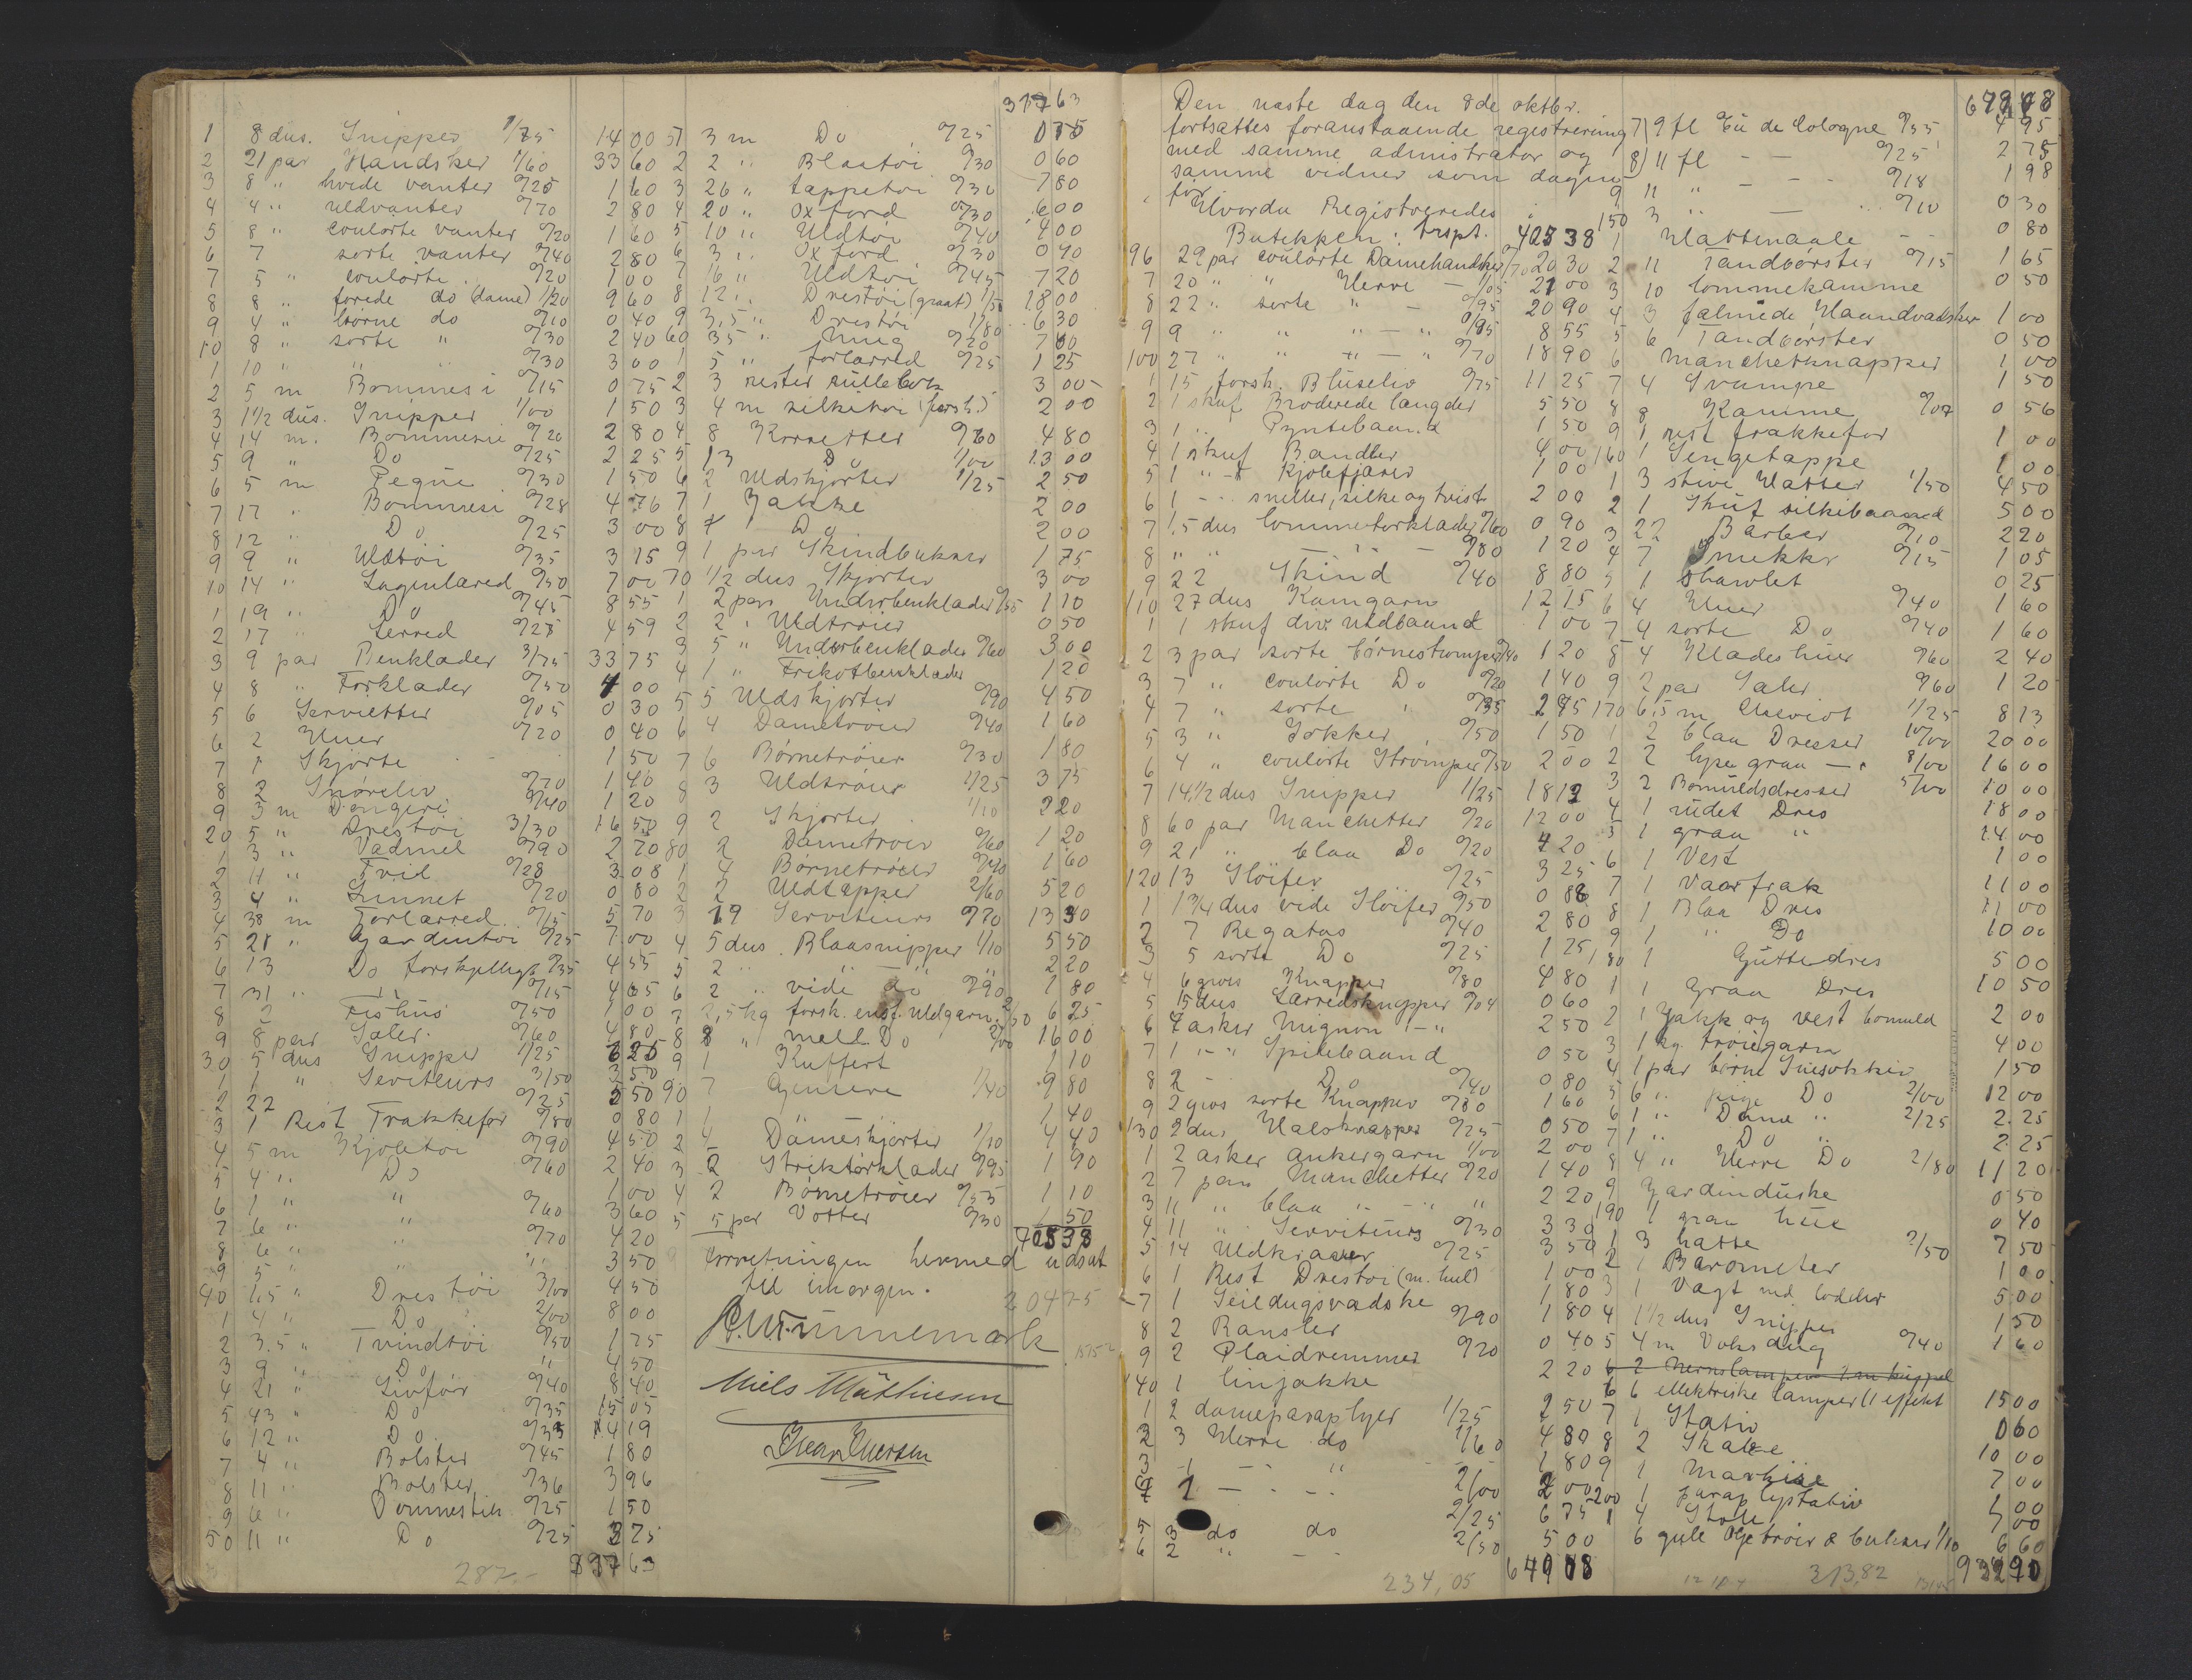 1 8 dus. Snipper 1/75 14 00
2 21 par Handsker 1/60 33 60
3 8 " hvide vanter 0/20 1 60
4 4 " uldvanter 0/70 2 80
5 8 " coulørte vanter 0/20 1 60
6 7 sorte vanter 0/40 2 80
7 5 " coulørte 0/20 1 00
8 8 " forede do (dame) 1/20 9 60
9 4 " børne do 0/10 0 40
10 8 " sorte " 0/30 2 40
1 10 " " " 0/30 3 00
2 5 m Bommesi 0/15 0 75
3 1 1/2 dus. Snipper 1/00 1 50
4 14 m. Bommesie 0/20 2 80
5 9 " Do 0/25 2 25
6 5 m Peque 0/30 1 50
7 17 " Bommesi 0/28 4 76
8 12 " Do 0/25 3 00
9 9 " Uldtøi 0/35 3 15
10 14 " Lagenlæred 0/50 7 00
1 19 " Do 0/45 8 55
2 17 " Lerred 0/27 4 59
3 9 par Benklæder 3/75 33 75
4 8 " Forklæder 0/50 4 00
5 6 Servietter 0/05 0 30
6 2 Huer 0/20 0 40
7 1 Skjorte 1 50
8 2 Snøreliv 0/70 1 40
9 3 m Dongeri 0/40 1 20
20 5 " Drestøi 3/30 16 50
1 3 " Vadmel 0/90 2 70
2 11 " Tvid 0/28 3 08
3 4 " Linnet 0/20 0 80
4 38 m Forlærred 0/15 5 70
5 28 " Gardintøi 0/25 7 00
6 13 Do forskjellige 0/35 4 55
7 31 " " 0/15 4 65
8 2 Fishus 0/50 1 00
9 8 par Sæler. 0/60 4 80
30 5 dus Snipper 1/25 6 25
1 1 " Serviteurs 3/50 3 50
2 22 0/25 5 50
3 1 Rest Frakkefor 0/80 0 80
4 5 m Kjoletøi 0/90 4 50
5 4 " Do 0/60 2 40
6 1 " " 1 00
7 6 " " 0/60 3 60
8 6 " " 0/70 4 20
9 5 " " 3 50
40 1,5 " Drestøi 3/00 4 50
1 4 " Do 2/00 8 00
2 3.5 " Tvindtøi 0/50 1 75
3 9 " Do " 4 50
4 21 " Livfor 0/40 8 40
5 43 " Do 0/35 15 05
6 12 " Do 4 19
7 4 " Bolster 0/45 1 80
8 11 " Bolster 0/36 3 96
9 6 " Dommestik 0/25 1 50
50 11 " Do 0/25 2 75
287.-
317 63
317 63
51 3 m Do 0/25 0 75
2 2 " Blaatøi 0/30 0 60
3 26 " tappetøi 0/30 7 80
4 20 " Oxford 0/30 6 00
5 10 " Uldtøi 0/40 4 00
6 3 " Oxford 0/30 0 90
7 16 " Uldtøi 0/45 7 20
8 12 " Drestøi (graat) 1/50 18 00
9 3,5 " Drestøi 1/80 6 30
60 35 " 0/20 7 00
1 5 " forlærred 0/25 1 25
2 3 rester 3 00
3 4 m silketøi (forsk.) 2 00
4 8 Korsetter 0/60 4 80
5 13 Do 1/00 13 00
6 2 Uldskjorter 1/25 2 50
7 1 Jakke 2 00
8 1 Do 2 00
9 1 par Skindbukser 1 75
70 1/2 dus Skjorter 3 00
1 2 par Underbenklæder 0/55 1 10
2 2 " Uldtrøier 0 50
3 5 " Underbenklæder 0/60 3 00
4 1 " Trikotbenklæder 1 20
5 5 Uldskjorter 0/90 4 50
6 4 Dametrøier 0/40 1 60
7 6 Børnetrøier 0/30 1 80
8 3 Uldtrøier 1/25 3 75
9 2 Skjorter 1/10 2 20
80 2 Dametrøier 0/60 1 20
1 4 Børnetrøier 0/40 1 60
2 2 Uldtæpper 2/60 5 20
3 19 Serviteurs 0/70 13 30
4 5 dus. Blaasnipper 1/10 5 50
5 2 " " 2 20
6 2 " vide do 0/90 1 80
7 2,5 kg forsk. ensf. uldgarn 2/50 6 25
8 8 " mell. Do 2/00 16 00
9 1 Kuffert 1 10
90 7 Gensere 1/40 9 80
1 1 1 40
2 4 Dameskjorter 1/10 4 40
3 2 Striktørklæder 0/95 1 90
4 2 Børnetrøier 0/55 1 10
5 5 par Votter 0/30 1 50
405 38
Forretningen hermed udsat
til imorgen.
204 75
Niels Mathiesen
Den næste dag den 8de oktbr.
fortsattes foranstaaende registrering
med samme administrator og
samme vidner som dagen
før
Hvorda Registreredes
Butikken: Trspt. 405 38
96 29 par coulørte Damehandsker 0/70 20 30
7 20 " " Herre - 1/05 21 00
8 22 " sorte " - 0/95 20 90
9 9 " " " - " 0/95 8 55
100 27 " " " - " 0/70 18 90
1 15 forsk. Bluseliv 0/75 11 25
2 1 skuf Broderede længder 5 50
3 1 " Pyntebaand 1 50
4 1 skuf Bændler 4 00
5 1 " Kjolefjærer 1 00
6 1 - sneller, silke og tvist 2 00
7 1.5 dus lommetørklæder 0/60 0 90
8 " " - " - 0/80 1 20
9 22 Skind 0/40 8 80
110 27 dus Kamgarn 12 15
1 1 skuf div uldbaand 1 00
2 3 par sorte børnestrømper 0/40 1 20
3 7 " coulørte Do 0/20 1 40
4 7 " sorte " 0/35 2 45
5 3 " Sokker 0/50 1 50
6 4 " coulørte Strømper 0/50 2 00
7 14 1/2 dus Snipper 1/25 18 13
8 60 par Manchetter 0/20 12 00
9 21 " blaa Do 0/20 4 20
120 13 Sløifer 0/25 3 25
1 1 3/4 dus vide Sløifer 0/50 0 88
2 7 Regatas 0/40 2 80
3 5 sorte Do 0/25 1 25
4 6 gros Knapper 0/80 4 80
5 15 dus Lærredsknapper 0/04 0 60
6 7 æsker Mignon - " 2 50
7 1 - " Spilebaand 0 50
8 2 - Do 0/40 0 80
9 2 gros sorte Knapper 0/80 1 60
130 2 dus Halsknapper 0/25 0 50
1 2 æsker ankergarn 1/00 2 00
2 7 par Manchetter 0/20 1 40
3 11 " blaa " - " " 2 20
4 11 " Serviteurs 0/30 3 30
5 14 Uldkraver 0/25 3 50
6 1 Rest Drestøi (m. hul) 1 00
7 1 Seildugsvadske 1 80
8 2 Ransler 0/90 1 80
9 2 Plaidremmer 0/20 0 40
140 1 linjakke 2 20
1 2 dameparaplyer 1/25 2 50
2 3 Herre do 1/60 4 80
3 1 - " 1 80
4 1 - " - 2/00 2 00
5 3 do do 2/25 6 75
6 2 " - 2/50 5 00
234,05
649 08
7 9 fl Eü de Cologne 0/55 4 95
8 11 fl - - 0/25 2 75
9 11 " - - 0/18 1 98
150 3 " - " 0/10 0 30
1 Hattenaale - - 0 80
2 11 Tandbørster 0/15 1 65
3 10 lommekamme 0 50
4 3 falmede Haandvadsker 1 00
5 6 Tandbørster 0 50
6 Manchetknapper 1 00
7 4 Svampe 1 50
8 8 Kamme 0/07 0 56
9 1 rest frakkefor 1 00
160 1 Sengetæppe 1 00
1 3 stive Hatter 1/50 4 50
2 1 Skuf silkebaand 5 00
3 22 Barber 0/10 2 20
4 7 Smekker 0/15 1 05
5 1 shawlet 0 25
6 4 Huer 0/40 1 60
7 4 sorte Do 0/40 1 60
8 4 Klædeshuer 0/60 2 40
9 2 par Sæler 0/60 1 20
170 6,5 m Cheviot 1/25 8 13
1 2 blaa Dresser 10/00 20 00
2 2 lysegraa - " 8/00 16 00
3 2 Bomuldsdresser 5/00 10 00
4 1 rudet Dres 18 00
5 1 graa " 14 00
6 1 Vest 1 00
7 1 Vaarfrak 11 00
8 1 Blaa Dres 11 00
9 1 " Do 10 00
180 1 Guttedres 5 00
1 1 Graa Dres 10 50
2 1 Jakk og vest bomuld 2 00
3 1 kg trøiegarn 4 00
4 1 par børne Snesokker 1 50
5 6 " pige Do 2/00 12 00
6 1 " Dame " 2/25 2.25
7 1 " Do " 2.25
8 4 " Herre Do 2/80 11 20
9 Gardinduske 0 50
190 1 graa hue 0 40
1 3 hatte 2/50 7 50
2 1 Barometer 1 00
3 1 Vægt med lodder 5.00
4 1 1/2 dus Snipper 1 50
5 4 m Voksdug 0/40 1 60
6 6 elektriske lamper (1 effekt 15 00
7 1 Stativ 0 60
8 2 Skabe 10 00
9 1 Markise 7 00
200 1 paraplystativ 1 00
1 4 Stole 4 00
6 gule Oljetrøier & bukser 1/10 6 60
313,82
932 90